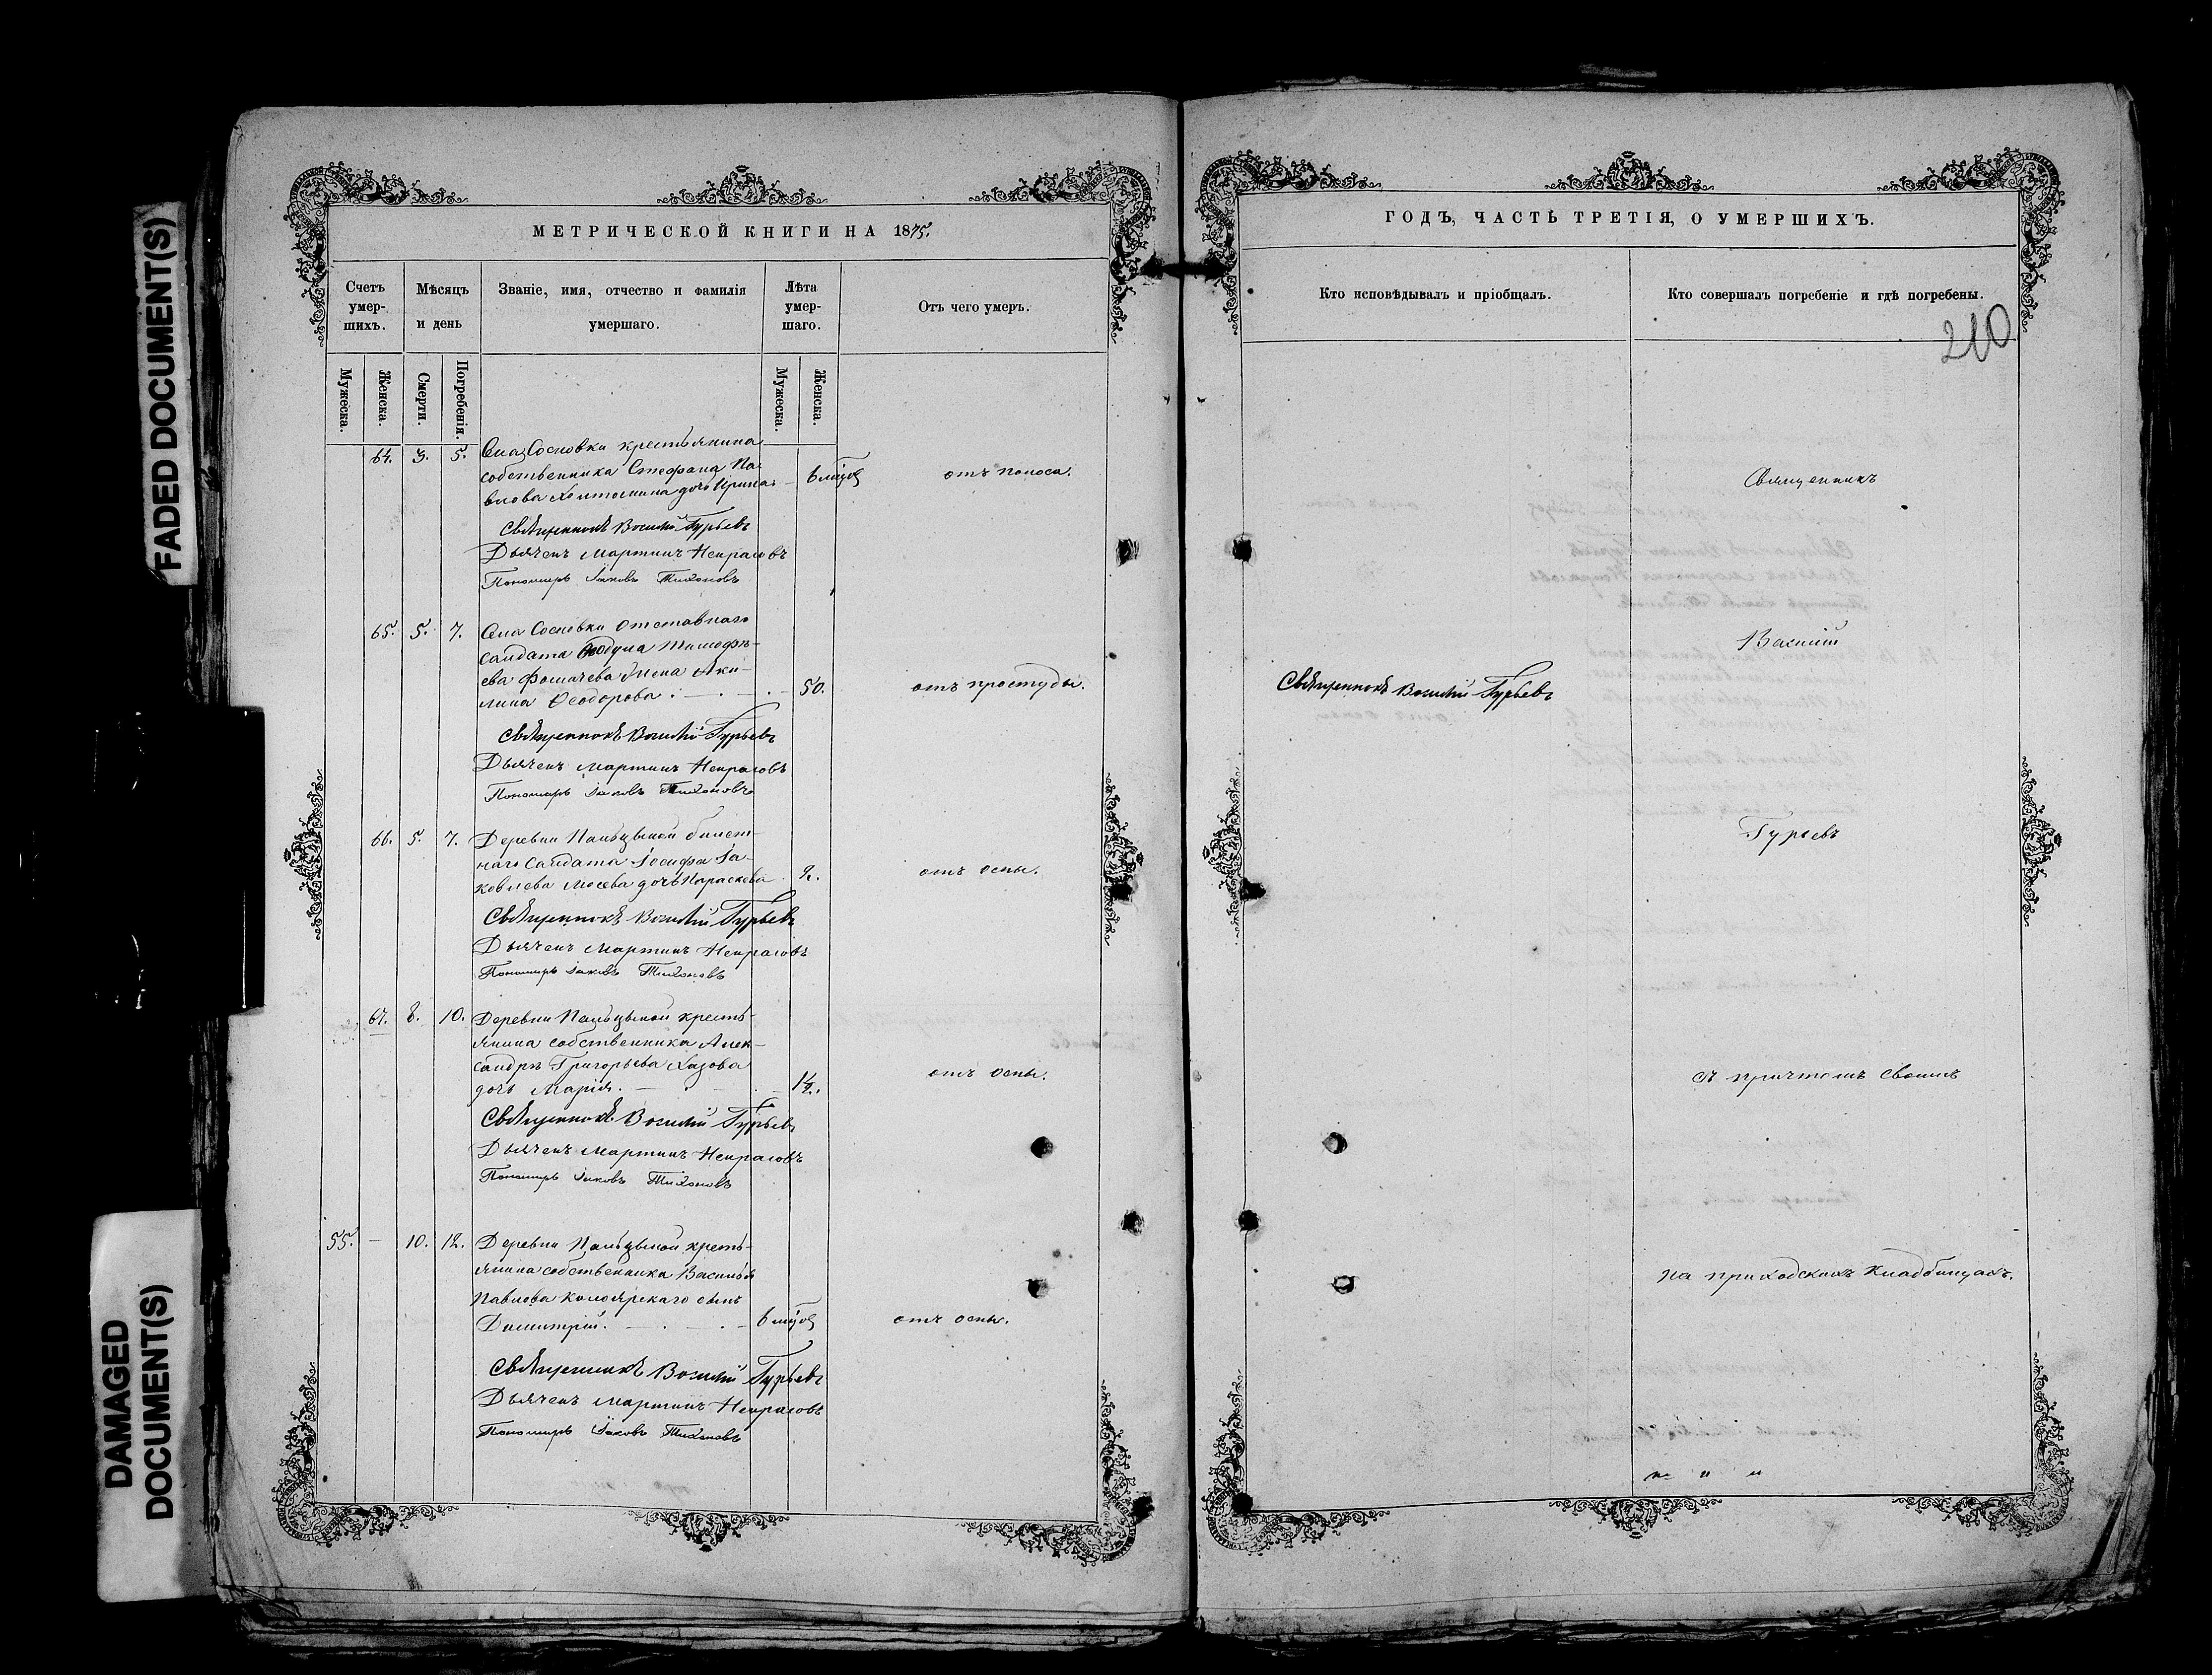 FADED DOCUMENT(S)
DAMAGED
DOCUMENT(S)
МЕТРИЧЕСКОЙ КНИГИ НА 1875.
Счетъ
умер-
шихъ.
Мѣсяцъ
и день
Званіе, имя, отчество и фамилія
умершаго.
Лѣта
умер-
шаго.
Отъ чего умеръ.
Мужеска.
Женска.
Смерти.
Погребенія.
Мужеска.
Женска.
64. 3. 5. Села Сосновки крестьянина
собственника Стефана Па-
влова дочь Ирина - 6 мѣсяц отъ поноса.
Священникъ Василій Гурьевъ
Дьячекъ Мартинъ Некрасовъ
Пономарь Іаковъ Тихоновъ
65. 5. 7. Села Сосновки отставнаго
салдата Тимофѣ-
ева Фомичева жена Аки-
лина Ѳеодорова. - 50. отъ простуды.
Священникъ Василій Гурьевъ
Дьячекъ Мартинъ Некрасовъ
Пономарь Іаковъ Тихоновъ
66. 5. 7. Деревни Пальцыной билет-
наго салдата Іосифа Іа-
ковлева Мосева дочь Параскева. 2. отъ оспы.
Священникъ Василій Гурьевъ
Дьячекъ Мартинъ Некрасовъ
Пономарь Іаковъ Тихоновъ
67. 8. 10. Деревни Пальцыной кресть-
янина собственника Алек-
сандра Григорьева Хазова
дочь Марія. - 1½. отъ оспы.
Священникъ Василій Гурьевъ
Дьячекъ Мартинъ Некрасовъ
Пономарь Іаковъ Тихоновъ
55. - 10. 12. Деревни Пальцыной кресть-
янина собственника Василья
Павлова Колоярскаго сынъ
Димитрій. - 6 мѣсяц отъ оспы.
Священникъ Василій Гурьевъ
Дьячекъ Мартинъ Некрасовъ
Пономарь Іаковъ Тихоновъ
ГОДЪ, ЧАСТЬ ТРЕТІЯ, О УМЕРШИХЪ.
Кто исповѣдывалъ и пріобщалъ.
Кто совершалъ погребеніе и гдѣ погребены.
210
Священникъ
Василій
Священникъ Василій Гурьевъ
Гурьевъ
съ причтомъ своимъ
на приходскихъ кладбищахъ.